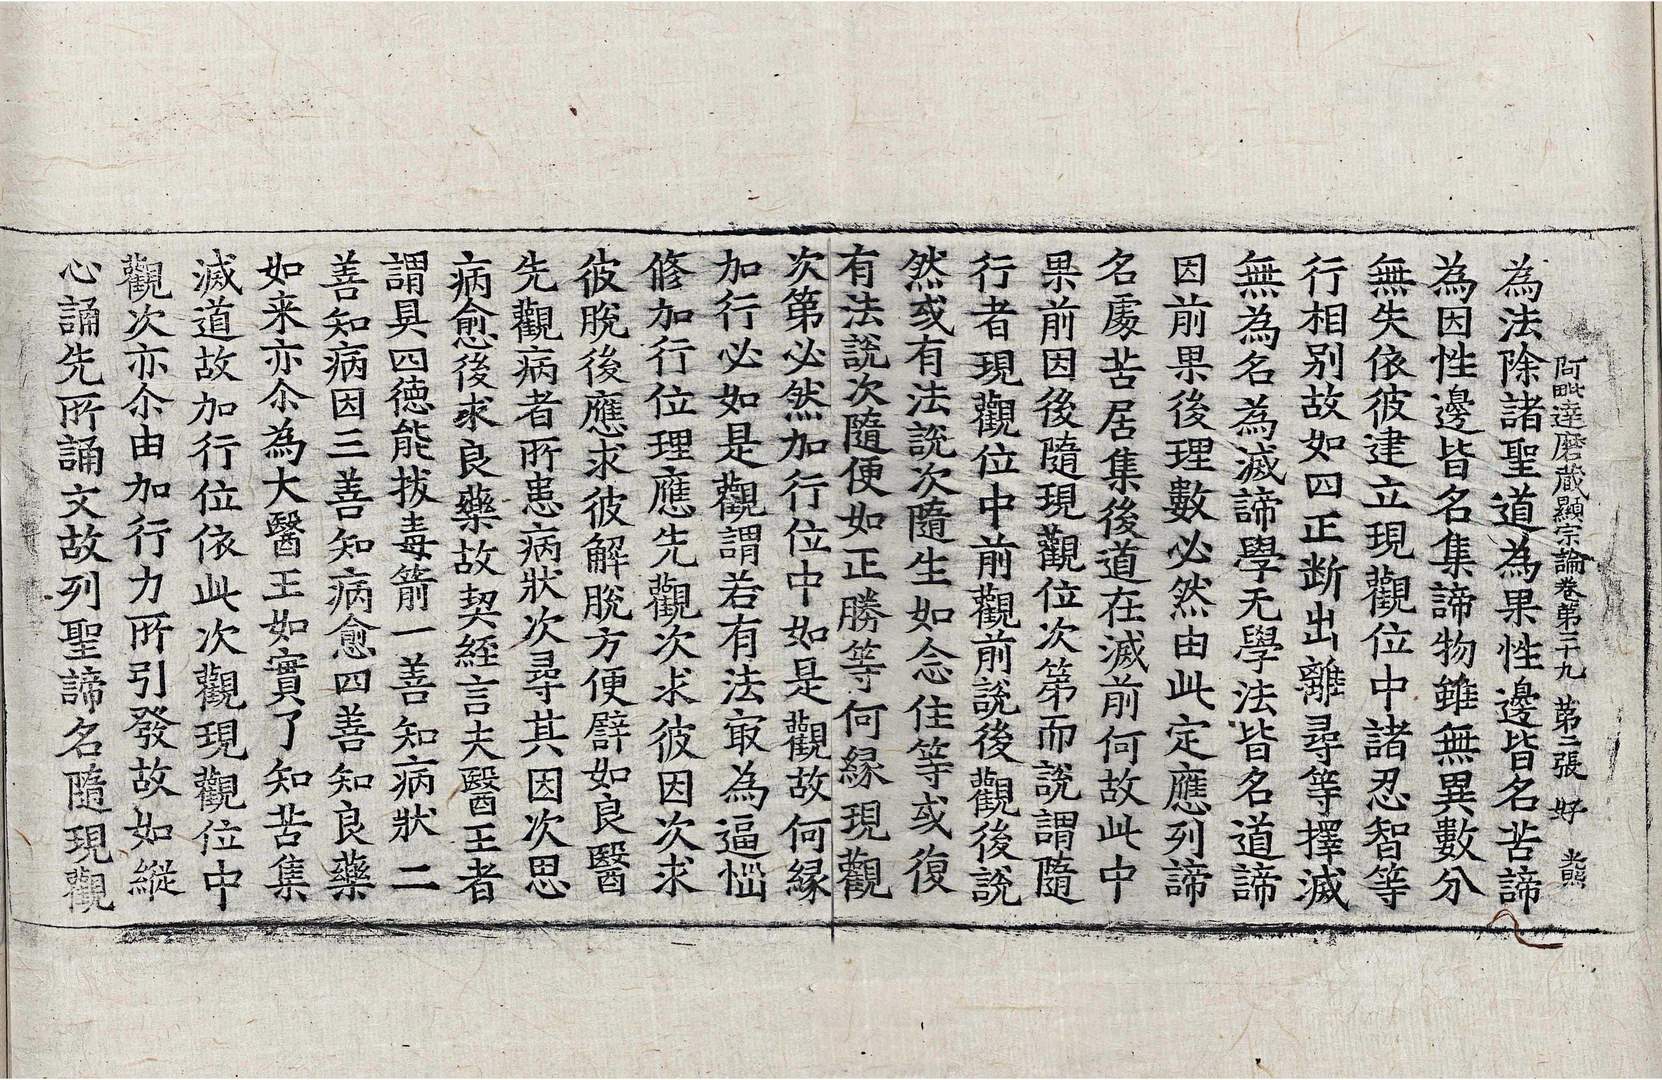 阿毗達磨藏顯宗論卷第二十九 第二張 好
為法除諸聖道為果性邊皆名苦諦
為因性邊皆名集諦物雖無異數分
無失依彼建立現觀位中諸忍智等
行相別故如四正断出離尋等擇滅
無為名為滅諦學无學法皆名道諦
因前果後理數必然由此定應列諦
名處苦居集後道在滅前何故此中
果前因後隨現觀位次第而說謂隨
行者現觀位中前觀前說後觀後說
然或有法說次隨生如念住等或復
有法說次隨便如正勝等何縁現觀
次第必然加行位中如是觀故何縁
加行必如是觀謂若有法冣為逼惱
修加行位理應先觀次求彼因次求
彼脫後應求彼解脫方便譬如良醫
先觀病者所患病狀次尋其因次思
病愈後求良藥故契經言夫醫王者
謂具四德能拔毒箭一善知病狀二
善知病因三善知病愈四善知良藥
如来亦尒為大醫王如實了知苦集
滅道故加行位依此次觀現觀位中
觀次亦尒由加行力所引發故如縱
心誦先所誦文故列聖諦名隨現觀